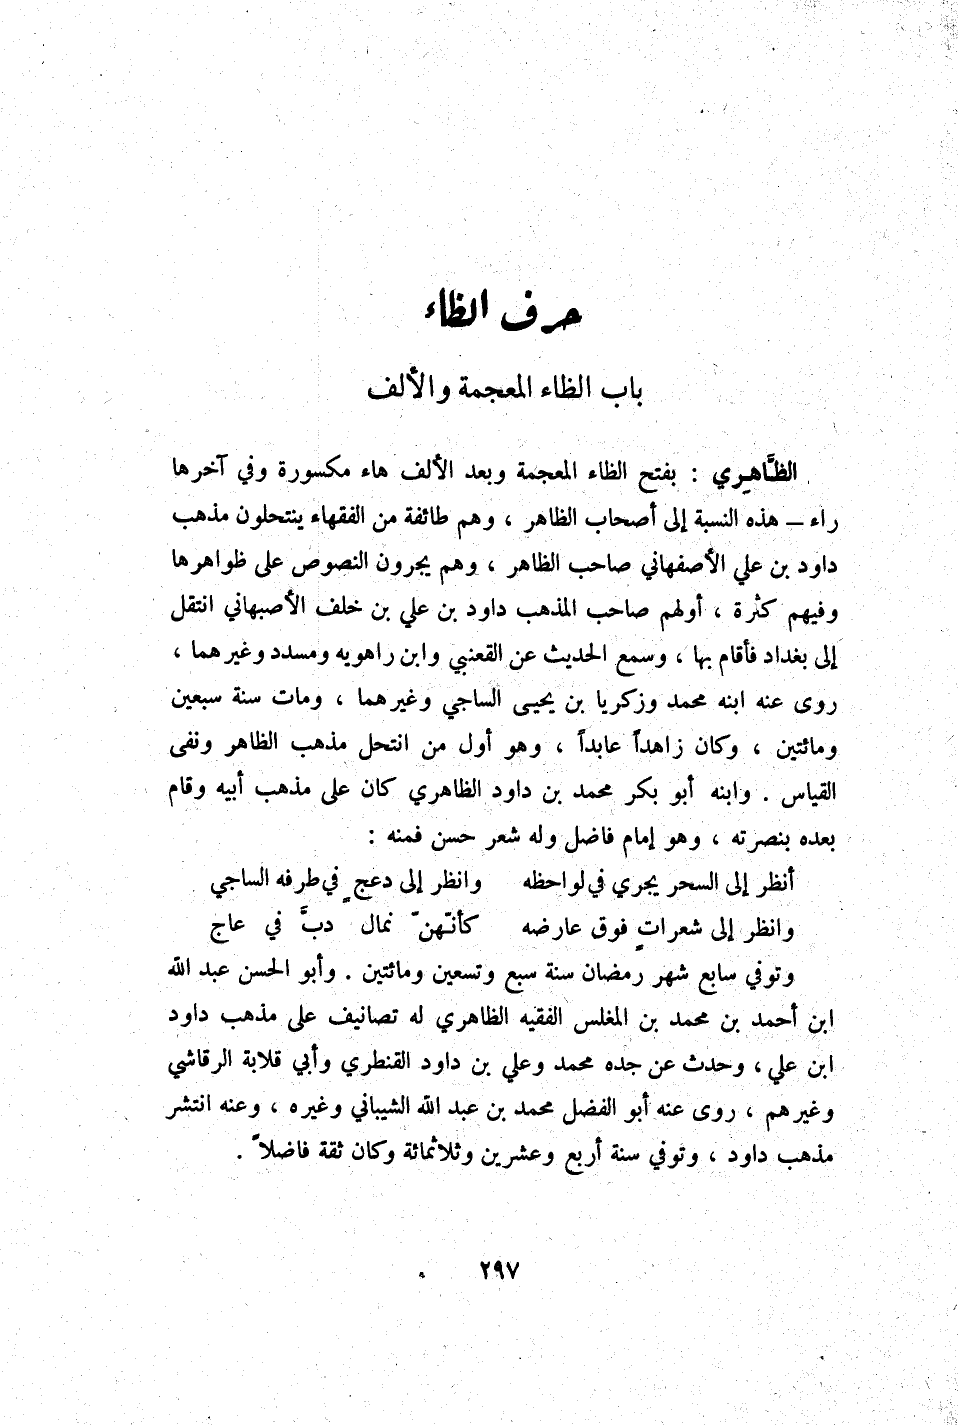 حرف الظاء
باب الظاء المعجمة والألف
الظَّاهِري : بفتح الظاء المعجمة وبعد الألف هاء مكسورة وفي آخرها
راء – هذه النسبة إلى أصحاب الظاهر ، وهم طائفة من الفقهاء ينتحلون مذهب
داود بن علي الأصفهاني صاحب الظاهر ، وهم يجرون النصوص على ظواهرها
وفيهم كثرة ، أولهم صاحب المذهب داود بن علي بن خلف الأصبهاني انتقل
إلى بغداد فأقام بها ، وسمع الحديث عن القعنبي وابن راهويه ومسدد وغيرهما ،
روى عنه ابنه محمد وزكريا بن يحيى الساجي وغيرهما ، ومات سنة سبعين
ومائتين ، وكان زاهداً عابداً ، وهو أول من انتحل مذهب الظاهر ونفى
القياس . وابنه أبو بكر محمد بن داود الظاهري كان على مذهب أبيه وقام
بعده بنصرته ، وهو إمام فاضل وله شعر حسن فمنه :
أنظر إلى السحر يجري في لواحظه وانظر إلى دعجٍ في طرفه الساجي
وانظر إلى شعراتٍ فوق عارضه كأنّهنّ نمال دبَّ في عاج
وتوفي سابع شهر رمضان سنة سبع وتسعين ومائتين . وأبو الحسن عبد الله
ابن أحمد بن محمد بن المغلس الفقيه الظاهري له تصانيف على مذهب داود
ابن علي ، وحدث عن جده محمد وعلي بن داود القنطري وأبي قلابة الرقاشي
وغيرهم ، روى عنه أبو الفضل محمد بن عبد الله الشيباني وغيره ، وعنه انتشر
مذهب داود ، وتوفي سنة أربع وعشرين وثلاثمائة وكان ثقة فاضلاً .
٢٩٧